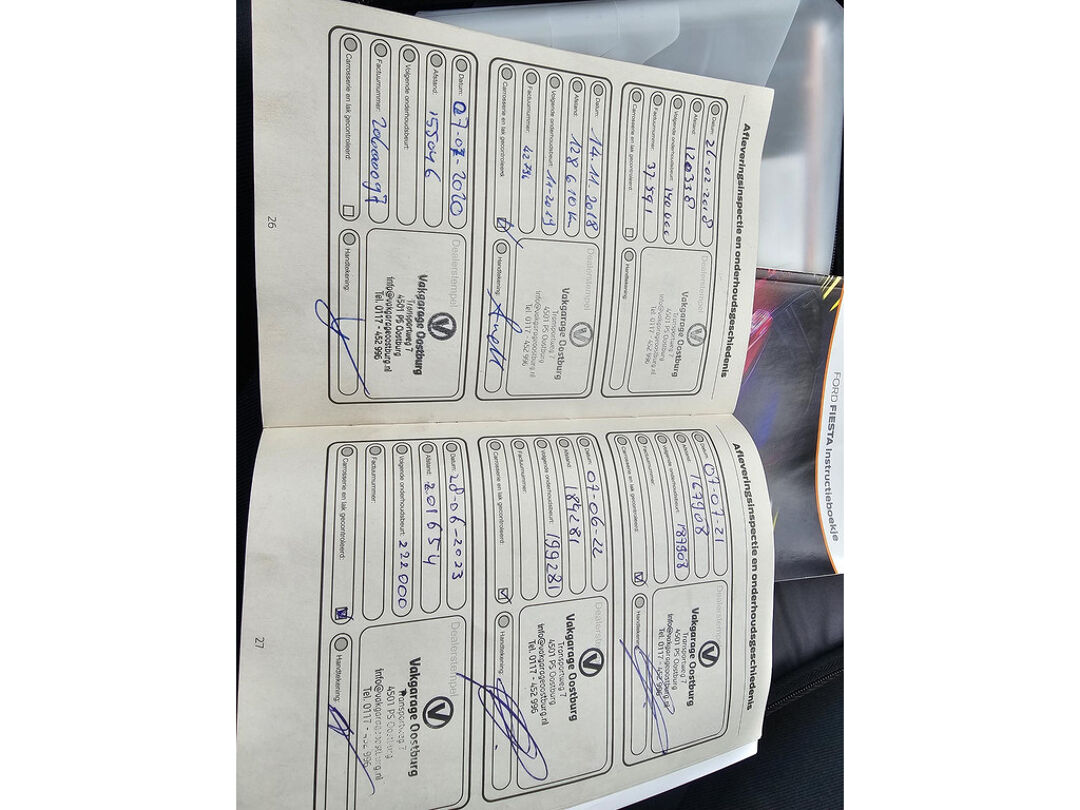 Afleveringsinspectie en onderhoudsgeschiedenis
Datum: 26-02-2018
Afstand: 120338
Volgende onderhoudsbeurt: 140 000
Factuurnummer: 37591
Carrosserie en lak gecontroleerd:
Dealerstempel
Vakgarage Oostburg
Transportweg 7
4501 PS Oostburg
info@vakgarageoostburg.nl
Tel. 0117 - 452 996
Handtekening:
Datum: 14.11.2018
Afstand: 128610 km
Volgende onderhoudsbeurt: 11-2019
Factuurnummer: 42794
Carrosserie en lak gecontroleerd:
Dealerstempel
Vakgarage Oostburg
Transportweg 7
4501 PS Oostburg
info@vakgarageoostburg.nl
Tel. 0117 - 452 996
Handtekening:
Datum: 07-07-2020
Afstand: 155046
Volgende onderhoudsbeurt:
Factuurnummer:
Carrosserie en lak gecontroleerd:
Dealerstempel
Vakgarage Oostburg
Transportweg 7
4501 PS Oostburg
info@vakgarageoostburg.nl
Tel. 0117 - 452 996
Handtekening:
26
Afleveringsinspectie en onderhoudsgeschiedenis
Datum: 07-07-21
Afstand: 167908
Volgende onderhoudsbeurt: 187908
Factuurnummer:
Carrosserie en lak gecontroleerd:
Dealerstempel
Vakgarage Oostburg
Transportweg 7
4501 PS Oostburg
info@vakgarageoostburg.nl
Tel. 0117 - 452 996
Handtekening:
Datum: 07-06-22
Afstand: 184281
Volgende onderhoudsbeurt: 199281
Factuurnummer:
Carrosserie en lak gecontroleerd:
Dealerstempel
Vakgarage Oostburg
Transportweg 7
4501 PS Oostburg
info@vakgarageoostburg.nl
Tel. 0117 - 452 996
Handtekening:
Datum: 28-06-2023
Afstand: 201654
Volgende onderhoudsbeurt: 222000
Factuurnummer:
Carrosserie en lak gecontroleerd:
Dealerstempel
Vakgarage Oostburg
Transportweg 7
4501 PS Oostburg
info@vakgarageoostburg.nl
Tel. 0117 - 452 996
Handtekening:
27
FORD FIESTA Instructieboekje